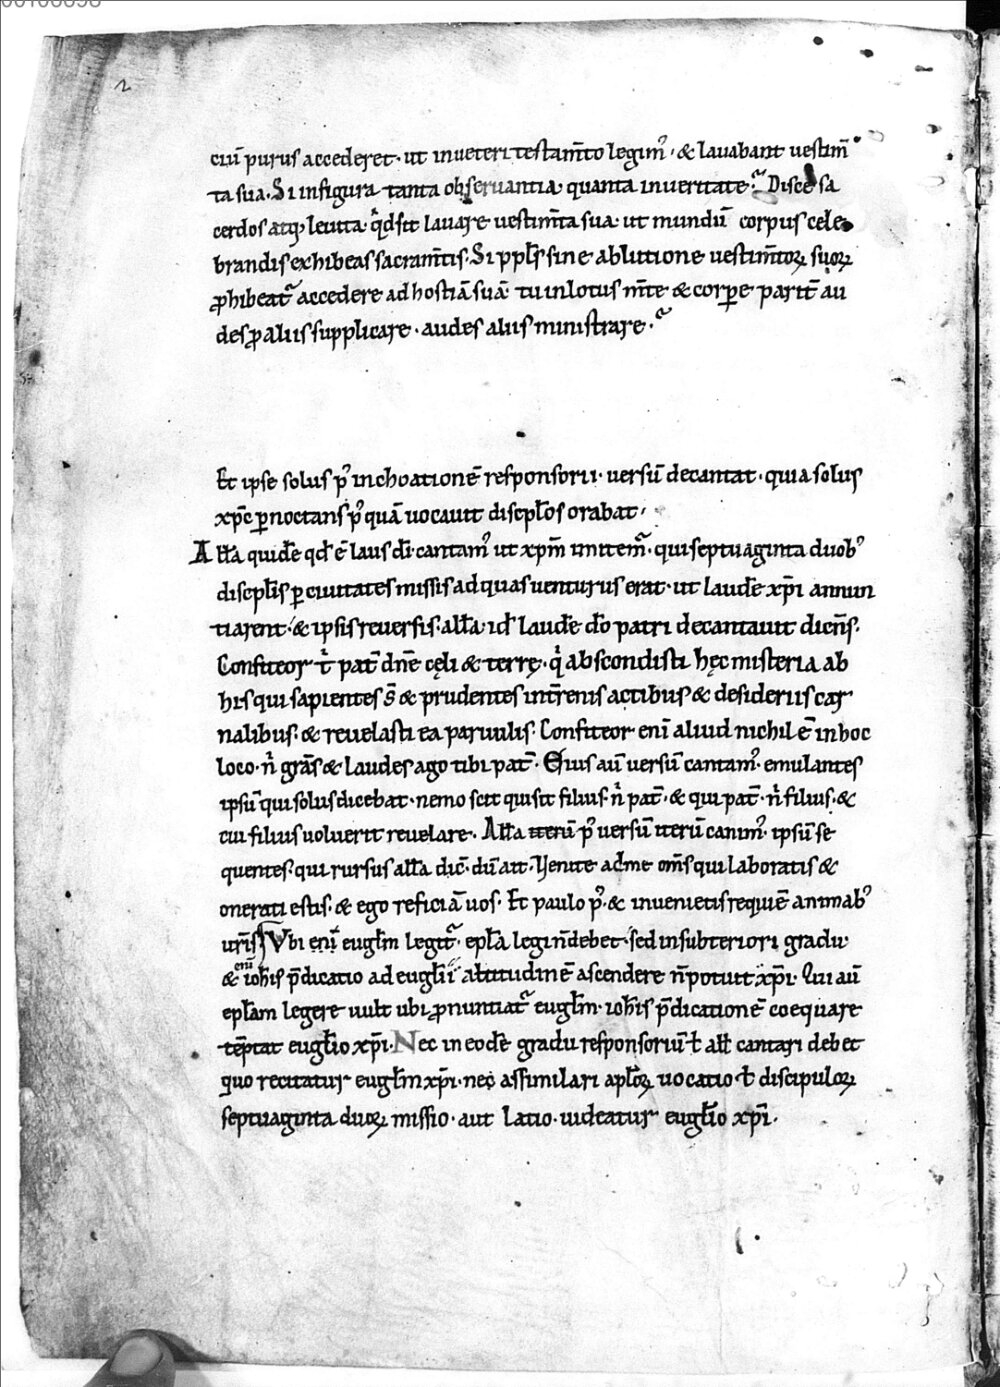 2
ciū purus accederet· ut in ueteri testam̄to legim᾽· & lauabant uestim̄
ta sua· Si in figura tanta obseruantia, quanta in ueritate? Disce sa
cerdos atq; leuita q̊d sit lauare uestim̄ta sua· ut mundū corpus cele
brandis exhibeas sacram̄tis· Si ppl̄s sine ablutione uestim̄toꝝ suoꝝ
ꝓhibeat᷑ accedere ad hostiā suā· tu inlotus m̄te & corꝑe parit̄ au
des ꝓ aliis supplicare· audes aliis ministrare?
Et ipse solus p᾽ inchoationē responsorii· uersū decantat· quia solus
xp̄c ꝑnoctans p᾽quā uocauit discpl̄os orabat·
All̄a quidē qd̄ ē laus dī· cantam᾽ ut xpm̄ imitem᷑· qui septuaginta duob᾽
discpl̄is ꝑ ciuitates missis ad quas uenturus erat· ut laudē xp̄i annun
tiarent· & ipsis reuersis· all̄a· id̄ laudē dō patri decantauit dicn̄s·
Confiteor t̄ pat̄ dn̄e cęli & terrę· q̊ abscondisti hęc misteria ab
his qui sapientes s̄ & prudentes int̄renis actibus & desideriis car
nalibus· & reuelasti ea paruulis· Confiteor enī aliud nichil ē in hoc
loco· n̊ grās & laudes ago tibi pat̄· Eius aū uersū cantam᾽· emulantes
ipsū qui solus dicebat· nemo scit quis sit filius· n̊ pat̄· & qui pat̄· n̊ filius· &
cui filius uoluerit reuelare· All̄a iterū p᾽ uersū iterū canim᾽· ipsū se
quentes· qui rursus all̄a dic̄· dū ait· Uenite ad me om̄s qui laboratis &
onerati estis· & ego reficiā uos· Et paulo p᾽· & inuenietis requiē animab᾽
ur̄is Vbi enī eugl̄m legit᷑· epl̄a legi n̄ debet· sed in subteriori gradu·
& enī ioh̄is p̄dicatio ad eugl̄ii altitudinē ascendere n̄ potuit xp̄i· Qui aū
epl̄am legere uult ubi ꝓnuntiat᷑ eugl̄m· ioh̄is p̄dicationē coequare
tēptat eugl̄io xp̄i· Nec in eodē gradu responsoriū ł all̄ cantari debet
quo recitatur eugl̄m xp̄i· nec assimilari apl̄oꝝ uocatio ł discipuloꝝ
septuaginta duoꝝ missio· aut latio· uideatur eugl̄io xp̄i·